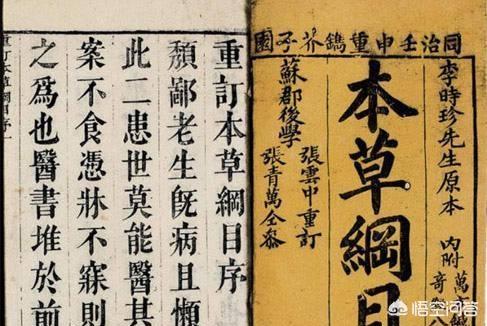 同治壬申重鐫芥子園
李時珍先生原本 內附 萬
奇
本草綱目
張雲中重訂
張青萬仝參
蘇郡後學
重訂本草綱目序
頽鄙老生旣病且懶
此二患世莫能醫其
案不食憑牀不寐則
之爲也醫書堆於前
重訂本草綱目序
悟空问答